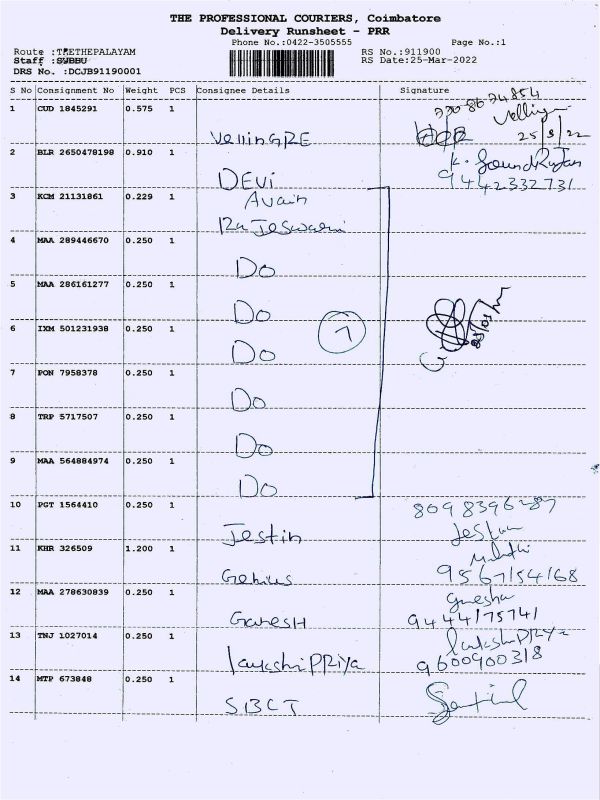 THE PROFESSIONAL COURIERS, Coimbatore
Delivery Runsheet - PRR
Phone No.:0422-3505555 Page No.:1
Route :TEETHEPALAYAM RS No.:911900
Staff :SWBBU RS Date:25-Mar-2022
DRS No. :DCJB91190001
S No Consignment No Weight PCS Consignee Details Signature
1 CUD 1845291 0.575 1
25/3/22
2 BLR 2650478198 0.910 1
DEVi 9442332731
3 KCM 21131861 0.229 1
4 MAA 289446670 0.250 1
Do
5 MAA 286161277 0.250 1
Do
7
6 IXM 501231938 0.250 1
Do
7 PON 7958378 0.250 1
Do
8 TRP 5717507 0.250 1
Do
9 MAA 564884974 0.250 1
Do
10 PGT 1564410 0.250 1
Jestin
11 KHR 326509 1.200 1
Genius 9567154168
12 MAA 278630839 0.250 1 Ganesha
GaneSH 9444175741
13 TNJ 1027014 0.250 1
9600900318
14 MTP 673848 0.250 1
SBCT